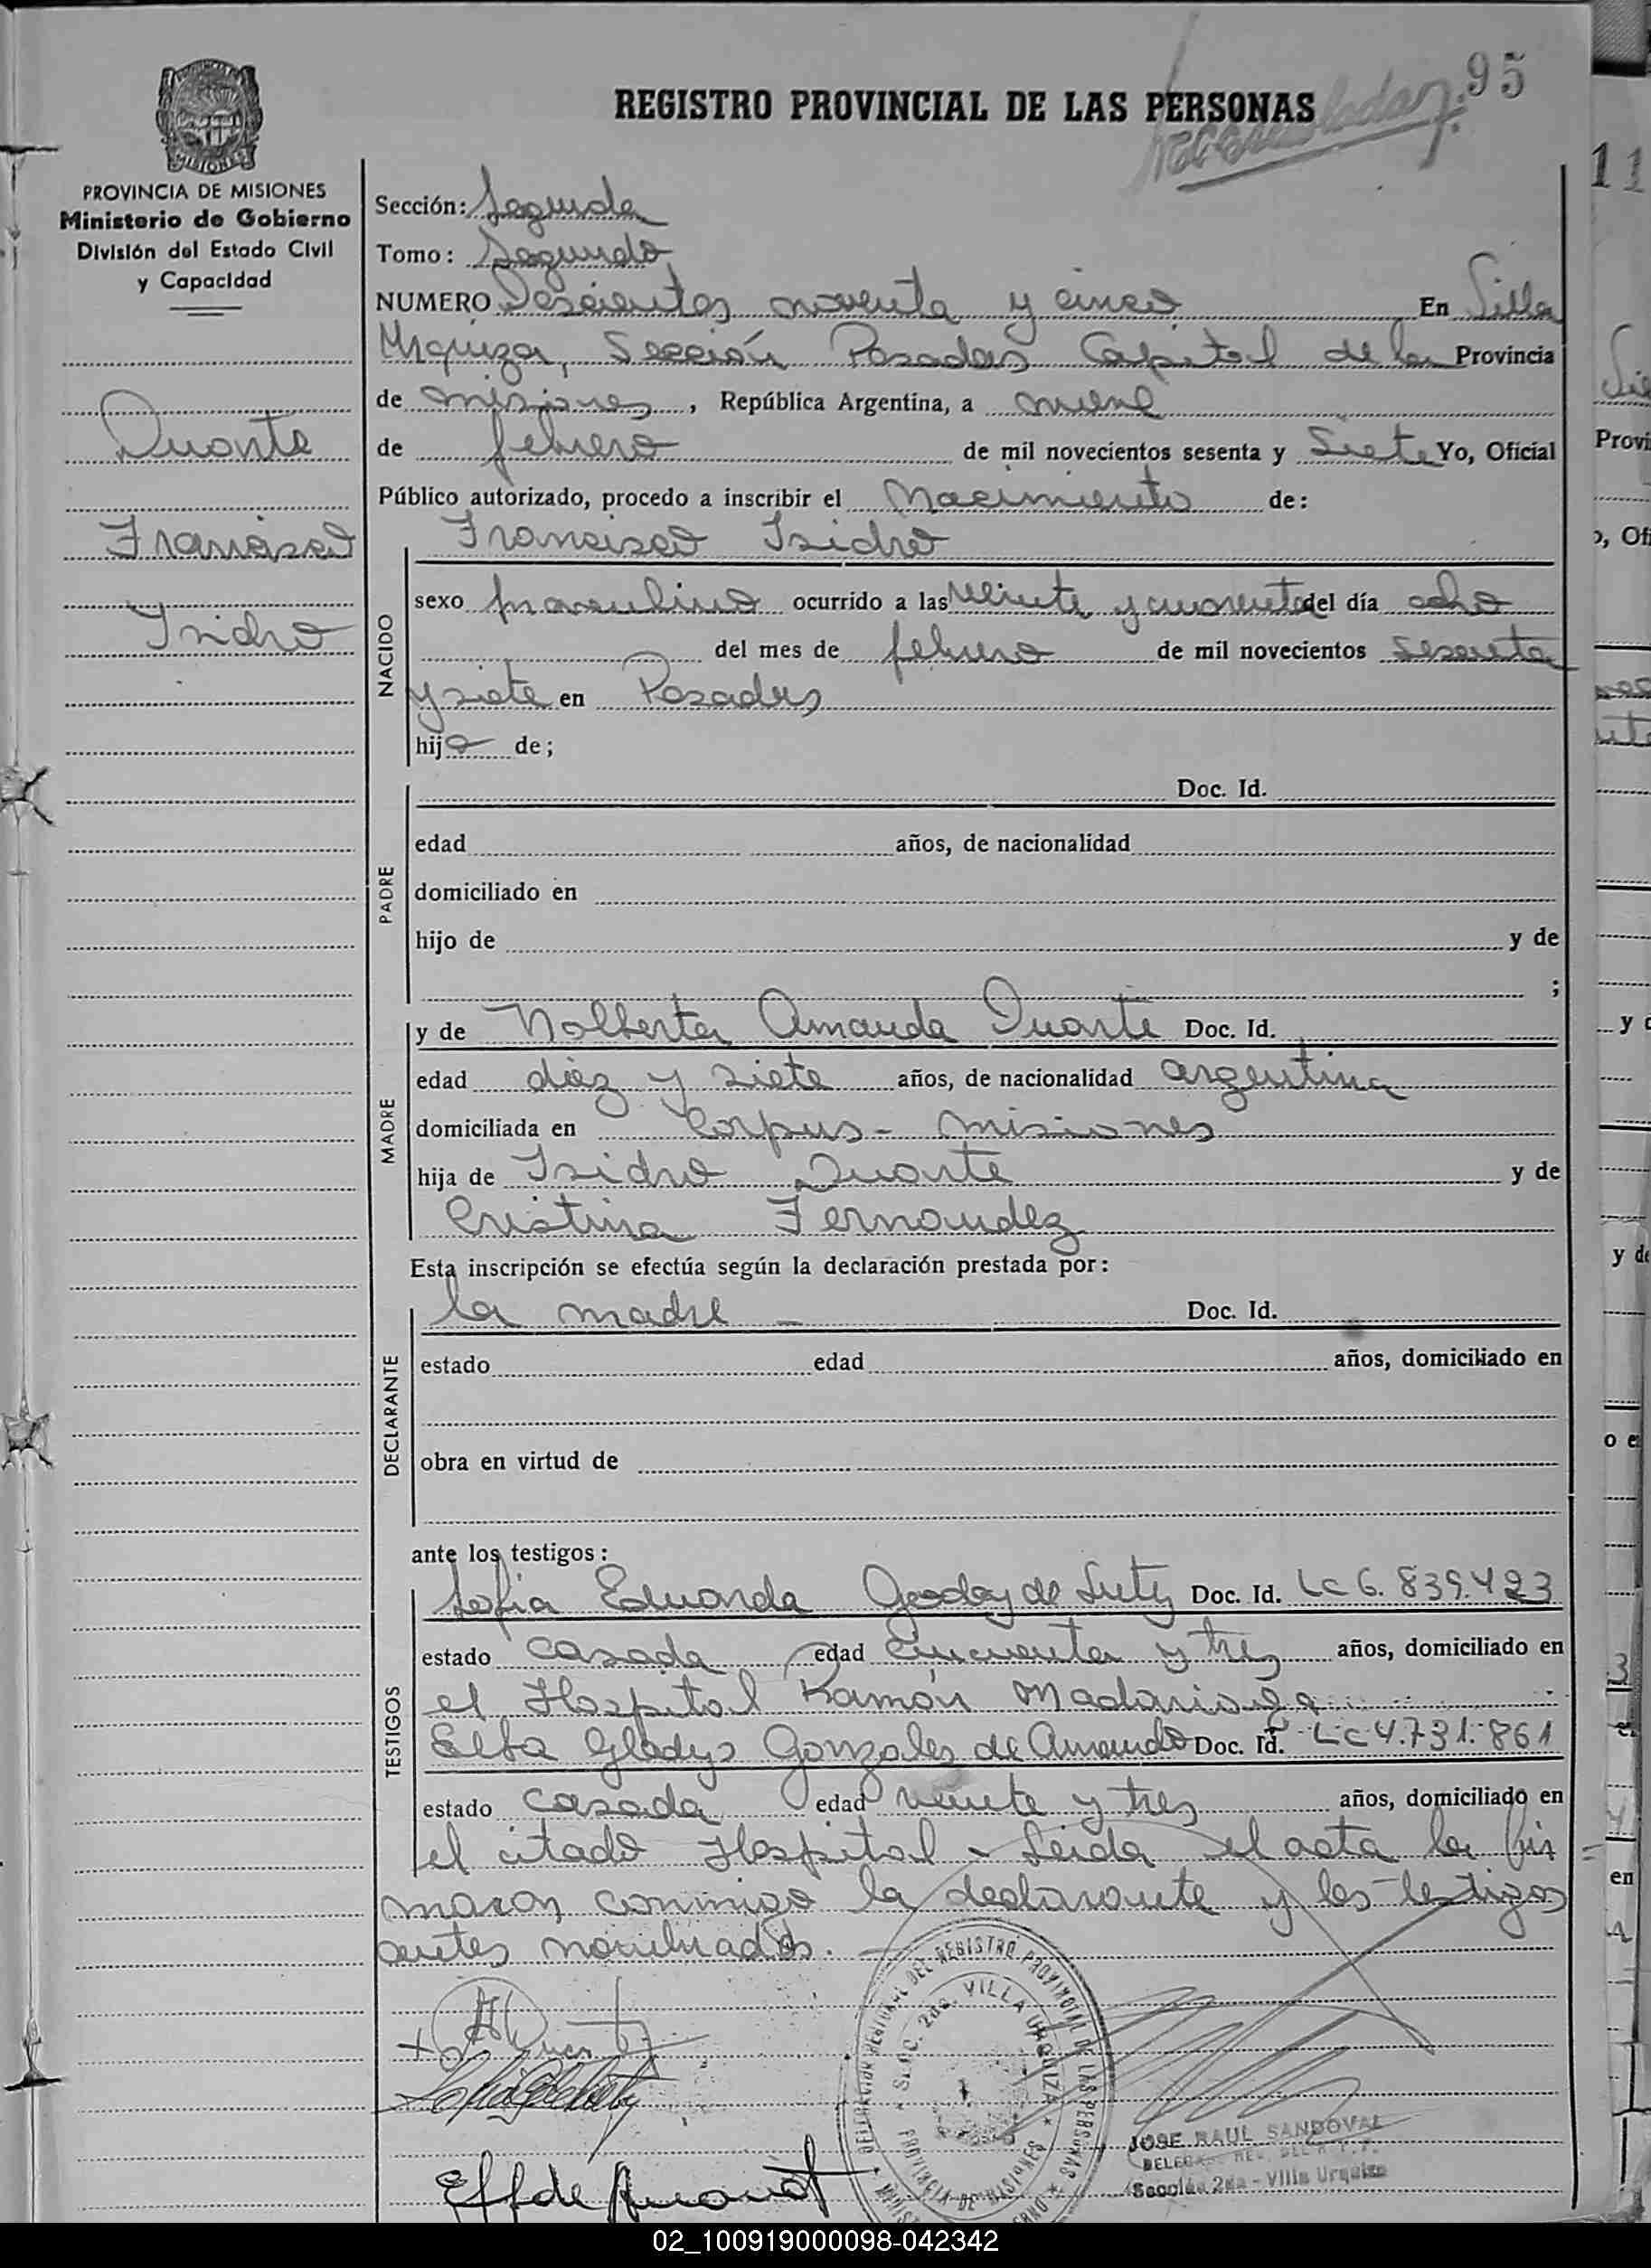 REGISTRO PROVINCIAL DE LAS PERSONAS
95
MISIONES
PROVINCIA DE MISIONES
Ministerio de Gobierno
División del Estado Civil
y Capacidad
Duarte
Francisco
Isidro
Sección: Segunda
Tomo: Segundo
NUMERO Doscientos noventa y cinco En Villa
Urquiza, Sección Posadas Capital de la Provincia
de Misiones, República Argentina, a nueve
de febrero de mil novecientos sesenta y Siete Yo, Oficial
Público autorizado, procedo a inscribir el Nacimiento de:
NACIDO
Francisco Isidro
sexo masculino ocurrido a las veinte y cuarenta del día ocho
del mes de febrero de mil novecientos sesenta
y siete en Posadas
hijo de;
PADRE
Doc. Id.
edad años, de nacionalidad
domiciliado en
hijo de y de
;
MADRE
y de Nolberta Amanda Duarte Doc. Id.
edad diez y siete años, de nacionalidad argentina
domiciliada en Corpus - Misiones
hija de Isidro Duarte y de
Cristina Fernandez
Esta inscripción se efectúa según la declaración prestada por:
DECLARANTE
la madre - Doc. Id.
estado edad años, domiciliado en
obra en virtud de
ante los testigos:
TESTIGOS
Sofia Eduarda Godoy de Doc. Id. LC 6.839.423
estado casada edad cincuenta y tres años, domiciliado en
el Hospital Ramón Madariaga
Elba Gladys Gonzalez de Doc. Id. LC 4.731.861
estado casada edad veinte y tres años, domiciliado en
el citado Hospital - Leida el acta la fir
maron conmigo la declarante y los testigos
antes nombrados.
DELEGACION REGIONAL DEL REGISTRO PROVINCIAL DE LAS PERSONAS
SECC. 2da. VILLA URQUIZA
PROVINCIA DE MISIONES
JOSE RAUL SANDOVAL
Sección 2da - Villa Urquiza
02_100919000098-042342